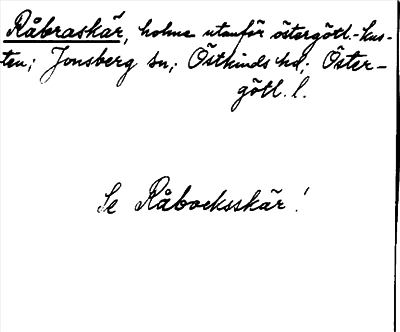 Råbraskär, holme utanför östergötl.-kus-
ten; Jonsberg sn; Östkinds hd; Öster-
götl. l.
Se Råbocksskär!